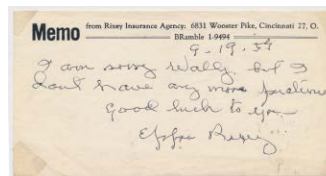 Memo from Rixey Insurance Agency: 6831 Wooster Pike, Cincinnati 27, O.
BRamble 1-9494
9-19-59
I am sorry Wally, but I
dont have any more pictures
Good luck to you
Eppa Rixey